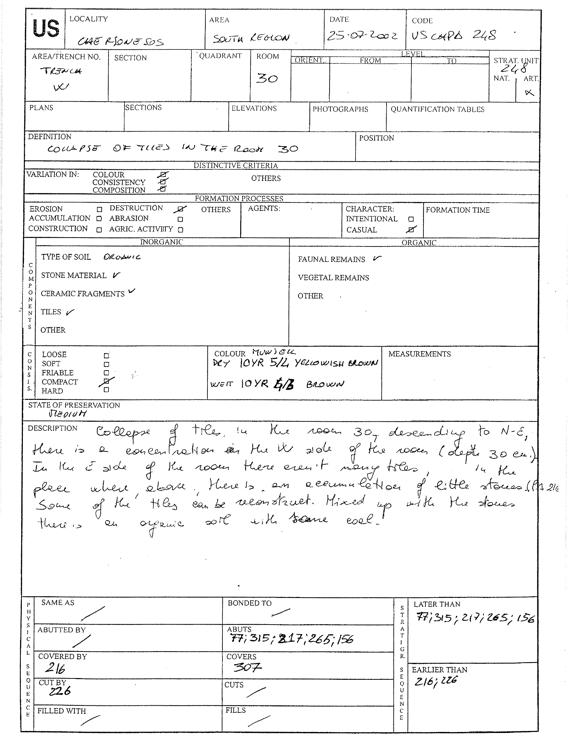 US
LOCALITY
CHERSONESOS
AREA
SOUTH REGION
DATE
25-07-2002
CODE
US CHPA 248
AREA/TRENCH NO.
TRENCH
W
SECTION
QUADRANT
ROOM
30
LEVEL
ORIENT. FROM TO
STRAT. UNIT
248
NAT. ART.
x
PLANS
SECTIONS
ELEVATIONS
PHOTOGRAPHS
QUANTIFICATION TABLES
DEFINITION
COLLAPSE OF TILES IN THE ROOM 30
POSITION
DISTINCTIVE CRITERIA
VARIATION IN: COLOUR
CONSISTENCY
COMPOSITION
OTHERS
FORMATION PROCESSES
EROSION
ACCUMULATION
CONSTRUCTION
DESTRUCTION
ABRASION
AGRIC. ACTIVITY
OTHERS
AGENTS:
CHARACTER:
INTENTIONAL
CASUAL
FORMATION TIME
COMPONENTS
INORGANIC
TYPE OF SOIL ORGANIC
STONE MATERIAL ✓
CERAMIC FRAGMENTS ✓
TILES ✓
OTHER
ORGANIC
FAUNAL REMAINS ✓
VEGETAL REMAINS
OTHER
CONSIS.
LOOSE
SOFT
FRIABLE
COMPACT
HARD
COLOUR MUNSELL
DRY 10YR 5/4 YELLOWISH BROWN
WET 10YR 4/3 BROWN
MEASUREMENTS
STATE OF PRESERVATION
MEDIUM
DESCRIPTION Collapse of tiles, in the room 30, descending to N-E,
there is a concentration in the W side of the room (depth 30 cm).
In the E side of the room there aren't many tiles, in the
place where, above, there is an accumulation of little stones (US 216
Some of the tiles can be reconstruct. Mixed up with the stones
there is an organic soil with some coal.
PHYSICAL SEQUENCE
SAME AS
BONDED TO
ABUTTED BY
ABUTS
77; 315; 217; 265; 156
COVERED BY
216
COVERS
307
CUT BY
226
CUTS
FILLED WITH
FILLS
STRATIGR. SEQUENCE
LATER THAN
77; 315; 217; 265; 156
EARLIER THAN
216; 226